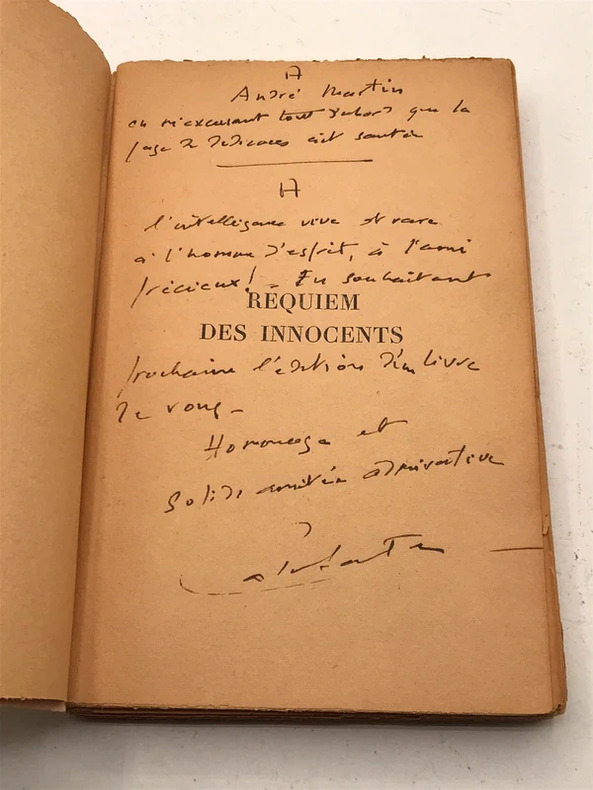 A
André Martin
en m'excusant tout d'abord que la
page de dédicaces ait sauté
A
l'intelligence vive et rare
à l'homme d'esprit, à l'ami
précieux! - En souhaitant
REQUIEM
DES INNOCENTS
prochaine l'édition d'un livre
de vous -
Hommage et
solide amitié admirative
Calaferte